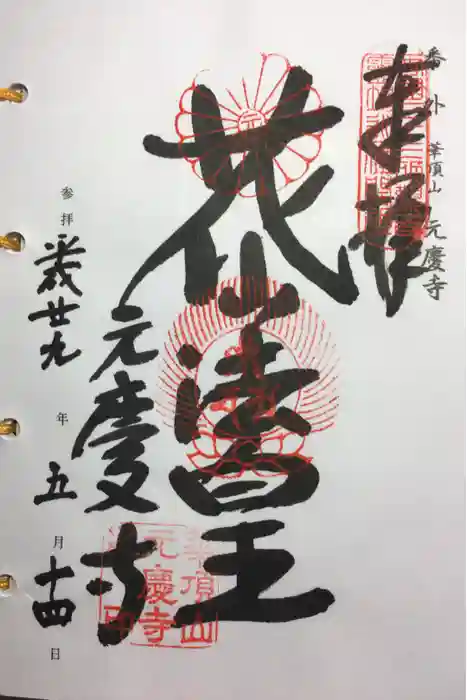 番外 華頂山 元慶寺
奉拝
花山法皇
元慶寺
参拝 平成廿九年五月十四日
華頂山
元慶寺